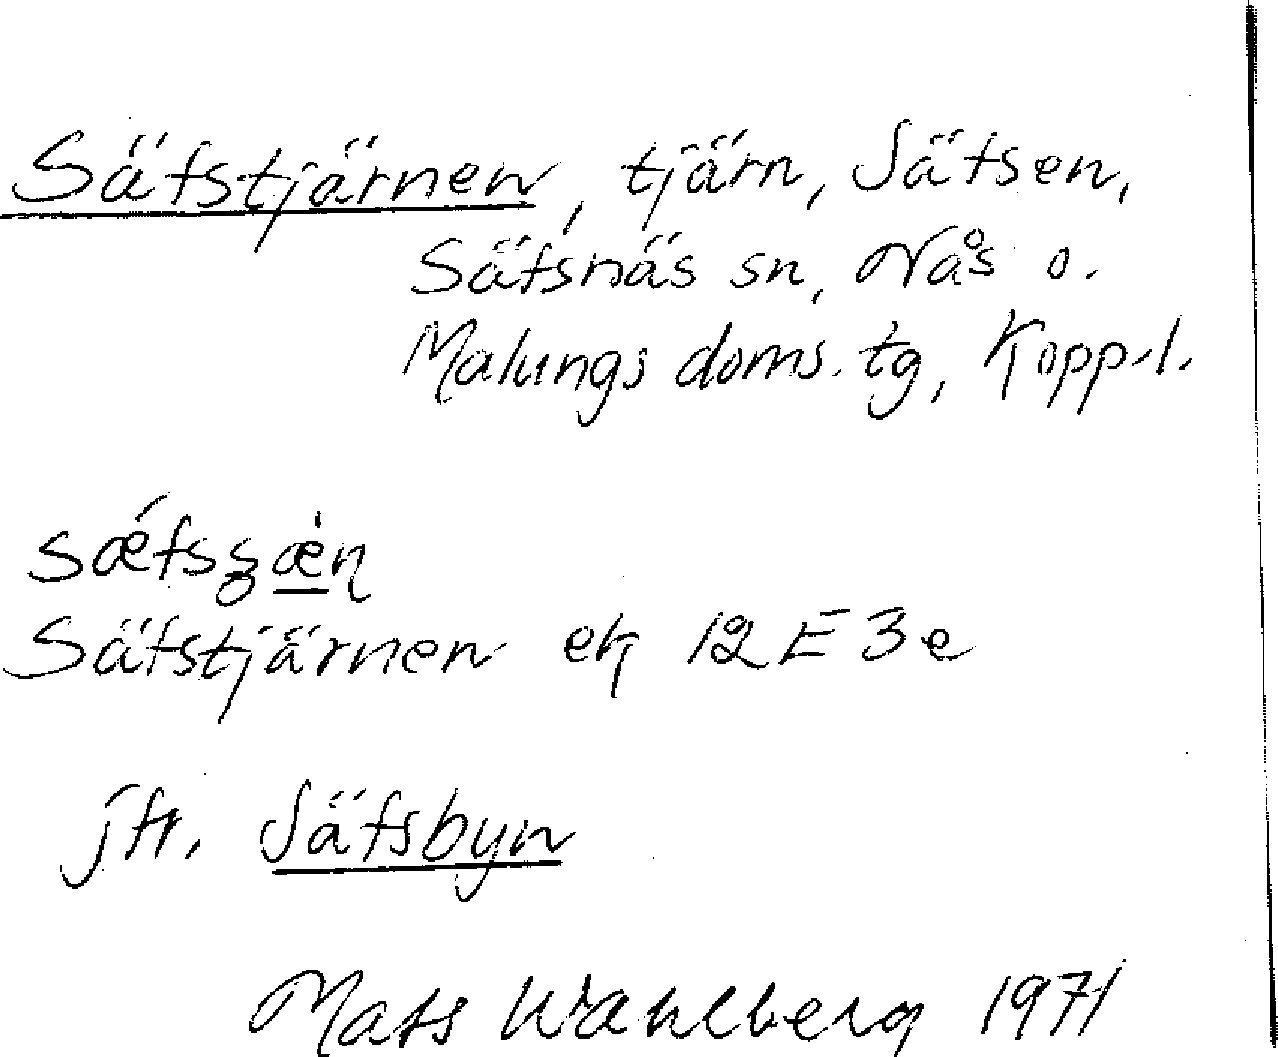 Säfstjärnen, tjärn, Säfsen,
Säfsnäs sn, Nås o.
Malungs doms. tg, Kopp.l.
sǽfsʒæ̀n
Säfstjärnen ek 12E3e
jfr. Säfsbyn
Mats Wahlberg 1971